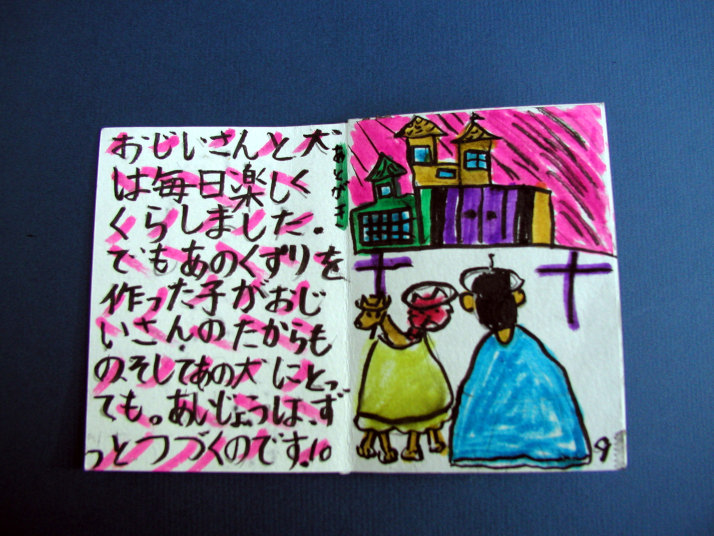 おじいさんと犬
は毎日楽しく
くらしました。
でもあのくずりを
作った子がおじ
いさんのたからも
の、そしてあの犬にとっ
ても。あいじょうは、ず
っとつづくのです。!。
あとがき
9